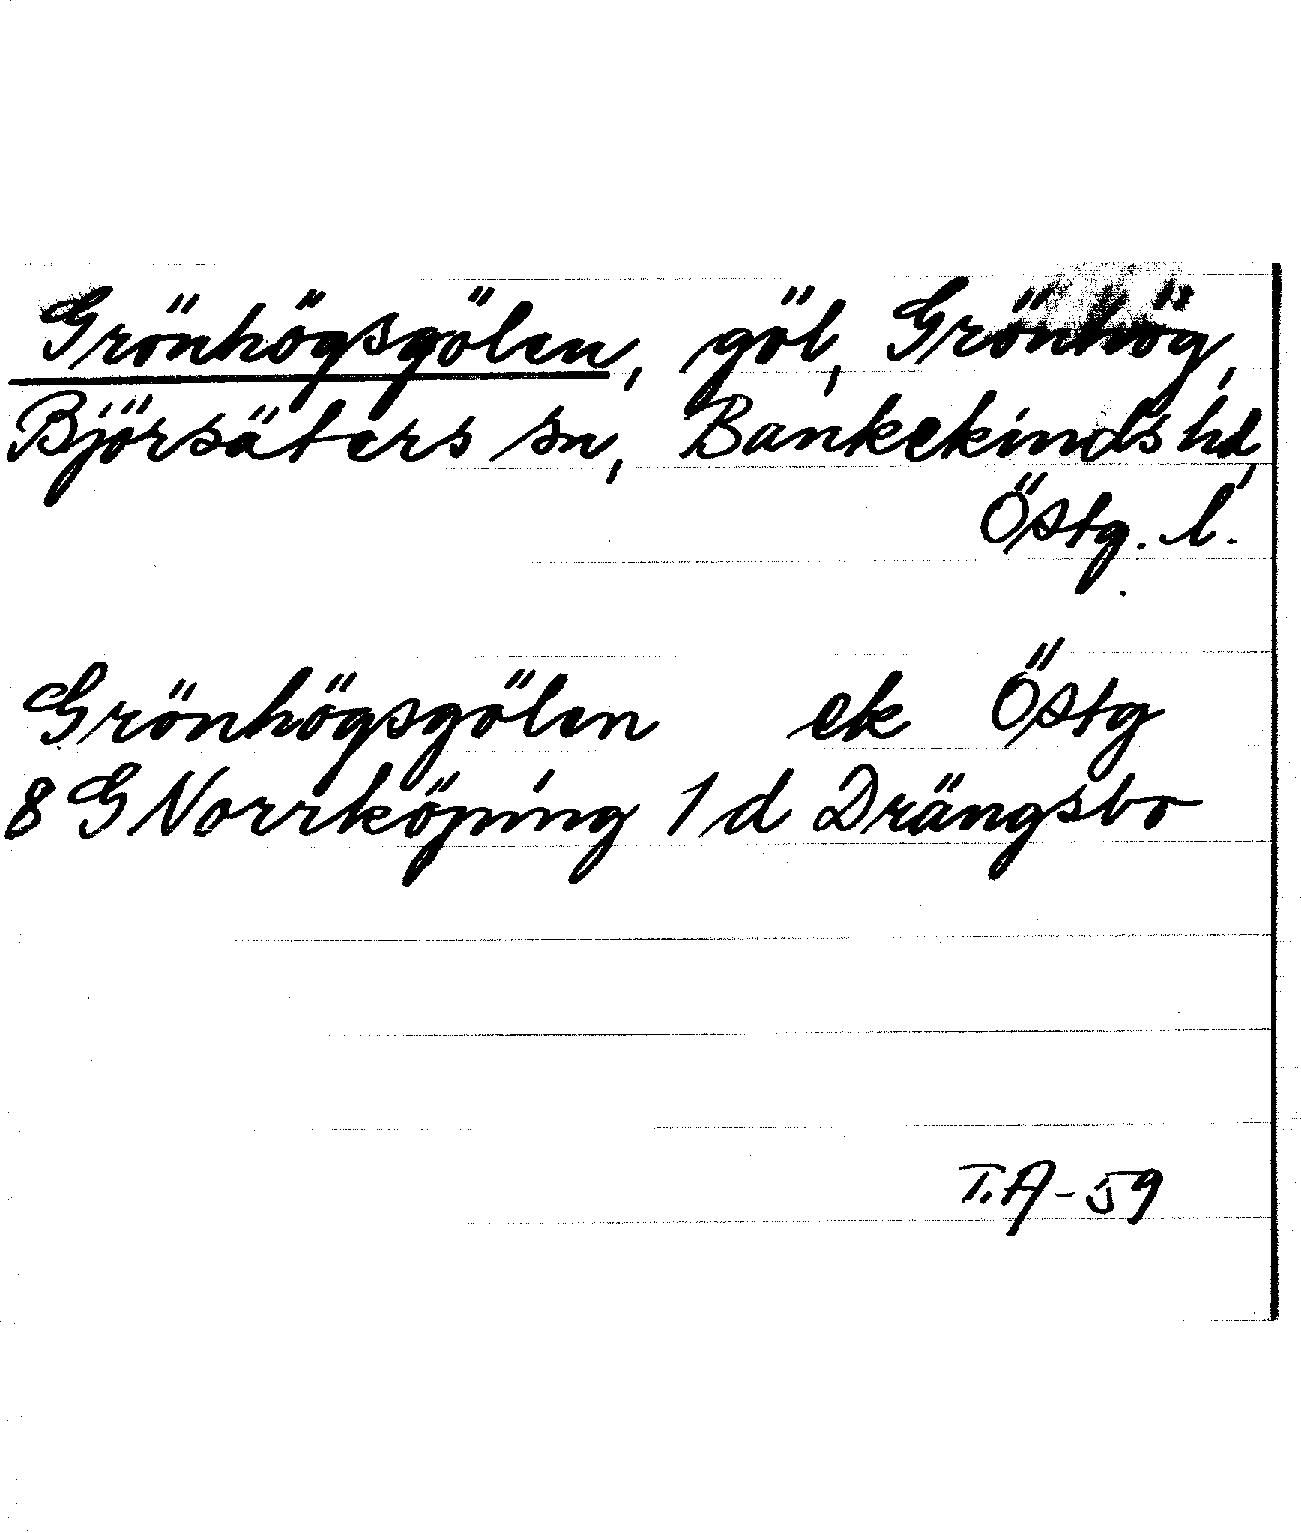 Grönhögsgölen, göl, Grönhög,
Björsäters sn, Bankekinds hd,
Östg. l.
Grönhögsgölen ek Östg
8 G Norrköping 1 d Drängsbo
T.A-59